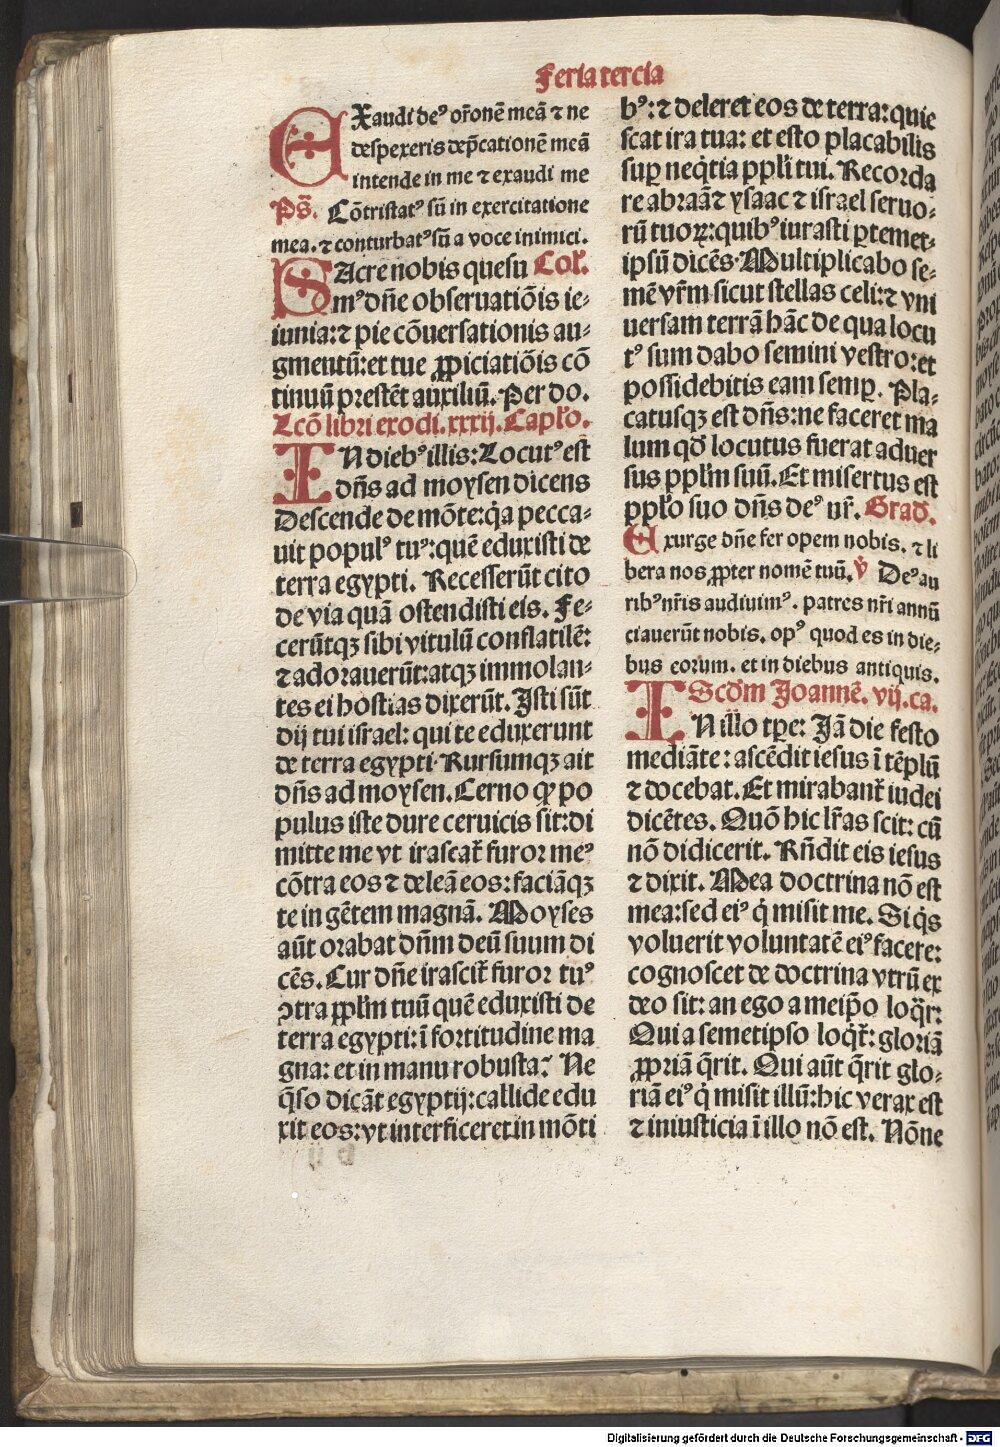 Feria tercia
EXaudi deꝰ or̃onẽ meã ⁊ ne
despexeris dep̃cationẽ meã
intende in me ⁊ exaudi me
Ps̃. Cõtristatꝰ sũ in exercitatione
mea. ⁊ conturbatꝰ sũ a voce inimici.
SAcre nobis quesu Col̃.
mꝰ dñe obseruatiõis ie⸗
iunia: ⁊ pie cõuersationis au⸗
gmentũ: et tue ꝓpiciatiõis cõ
tinuũ prestẽt auxiliũ. Per do.
Lcõ libri exodi. xxxij. Capl̃o.
IN diebꝰ illis: Locutꝰ est
dñs ad moysen dicens
Descende de mõte: q̇a pecca⸗
uit populꝰ tuꝰ: quẽ eduxisti de
terra egypti. Recesserũt cito
de via quã ostendisti eis. Fe⸗
cerũtqꝫ sibi vitulũ conflatilẽ:
⁊ adorauerũt: atqꝫ immolan⸗
tes ei hostias dixerũt. Isti sũt
dij tui israel: qui te eduxerunt
de terra egypti. Rursumqꝫ ait
dñs ad moysen. Cerno ꝙ po
pulus iste dure ceruicis sit: di
mitte me vt irascat᷑ furor meꝰ
cõtra eos ⁊ deleã eos: faciãqꝫ
te in gẽtem magnã. Moyses
aũt orabat dñm deũ suum di
cẽs. Cur dñe irascit᷑ furor tuꝰ
ꝯtra ppl̃m tuũ quẽ eduxisti de
terra egypti: ĩ fortitudine ma
gna: et in manu robusta? Ne
q̃so dicãt egyptij: callide edu
xit eos: vt interficeret in mõti
bꝰ: ⁊ deleret eos de terra: quie
scat ira tua: et esto placabilis
suꝑ neq̇tia ppl̃i tui. Recorda
re abraã ⁊ ysaac ⁊ israel seruo⸗
rũ tuoꝝ: quibꝰ iurasti ꝑ temet⸗
ipsũ dicẽs. Multiplicabo se⸗
mẽ vr̃m sicut stellas celi: ⁊ vni
uersam terrã hãc de qua locu
tꝰ sum dabo semini vestro: et
possidebitis eam semꝑ. Pla⸗
catusqꝫ est dñs: ne faceret ma
lum qđ locutus fuerat aduer
sus ppl̃m suũ. Et misertus est
ppl̃o suo dñs deꝰ nr̃. Građ.
Exurge dñe fer opem nobis. ⁊ li
bera nos ꝓpter nomẽ tuũ. v̇ Deꝰ au
ribꝰ nr̃is audiuimꝰ. patres nr̃i annũ
ciauerũt nobis. opꝰ quod es in die⸗
bus eorum. et in diebus antiquis.
Scđm Joannẽ. vij. ca.
IN illo tꝑe: Jã die festo
mediãte: ascẽdit iesus ĩ tẽplũ
⁊ docebat. Et mirabant᷑ iudei
dicẽtes. Quõ hic lr̃as scit: cũ
nõ didicerit. Rñdit eis iesus
⁊ dixit. Mea doctrina nõ est
mea: sed eiꝰ q̇ misit me. Si q̇s
voluerit voluntatẽ eiꝰ facere:
cognoscet de doctrina vtrũ ex
deo sit: an ego a meip̃o loq̃r:
Qui a semetipso loq̇t᷑: gloriã
ꝓpriã q̃rit. Qui aũt q̃rit glo⸗
riã eiꝰ q̇ misit illũ: hic verax est
⁊ iniusticia ĩ illo nõ est. Nõne
Digitalisierung gefördert durch die Deutsche Forschungsgemeinschaft - DFG